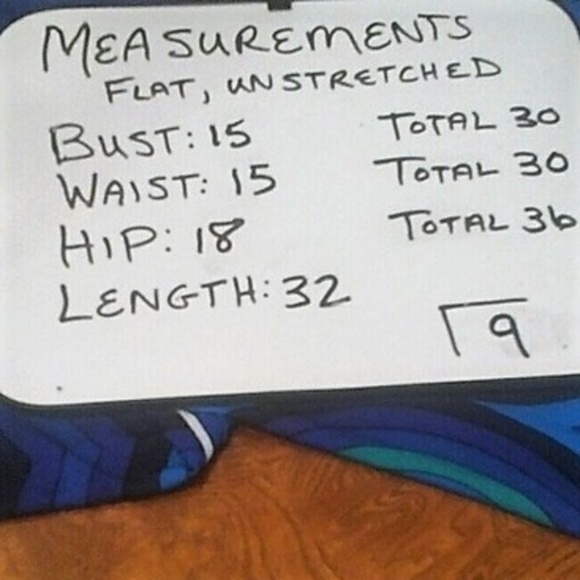 MEASUREMENTS
FLAT, UNSTRETCHED
BUST: 15 TOTAL 30
WAIST: 15 TOTAL 30
HIP: 18 TOTAL 36
LENGTH: 32
9